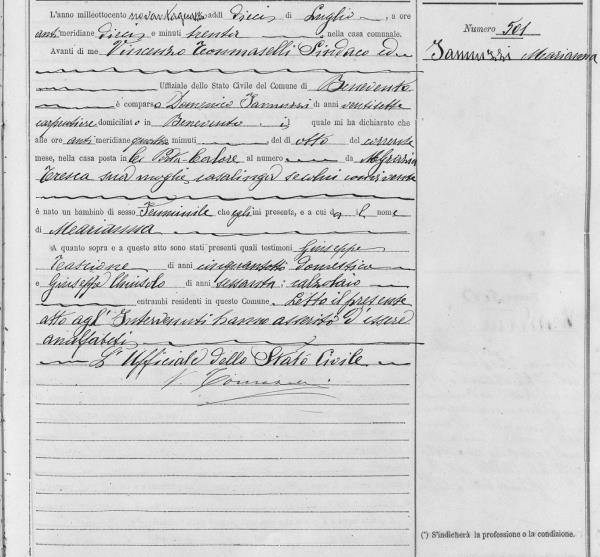 L'anno milleottocento novantaquattro, addì dieci di Luglio, a ore
anti meridiane dieci e minuti trenta, nella casa comunale.
Avanti di me Vincenzo Tommaselli Sindaco ed
Uffiziale dello Stato Civile del Comune di Benevento
è comparso Domenico Iannuzzi, di anni ventisette
carpentiere domiciliato in Benevento il quale mi ha dichiarato che
alle ore anti meridiane quattro e minuti del dì otto del corrente
mese, nella casa posta in Porta Calore al numero da
Teresa sua moglie casalinga seco lui convivente
è nato un bambino di sesso Femminile che egli mi presenta, e a cui dà il nome
di Marianna
A quanto sopra e a questo atto sono stati presenti quali testimoni Giuseppe
di anni cinquantotto domestico
e Giuseppe di anni sessanta calzolaio
entrambi residenti in questo Comune. Letto il presente
atto agl'Intervenuti hanno asserito d'essere
analfabeti
L'Uffiziale dello Stato Civile
Numero 501
Iannuzzi Marianna
(*) S'indicherà la professione o la condizione.